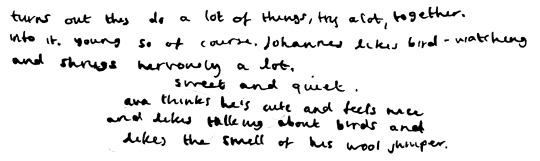 turns out they do a lot of things, try a lot, together.
into it. young so of course. Johannes likes bird-watching
and shrugs nervously a lot.
sweet and quiet.
ava thinks he's cute and feels nice
and likes talking about birds and
likes the smell of his wool jumper.